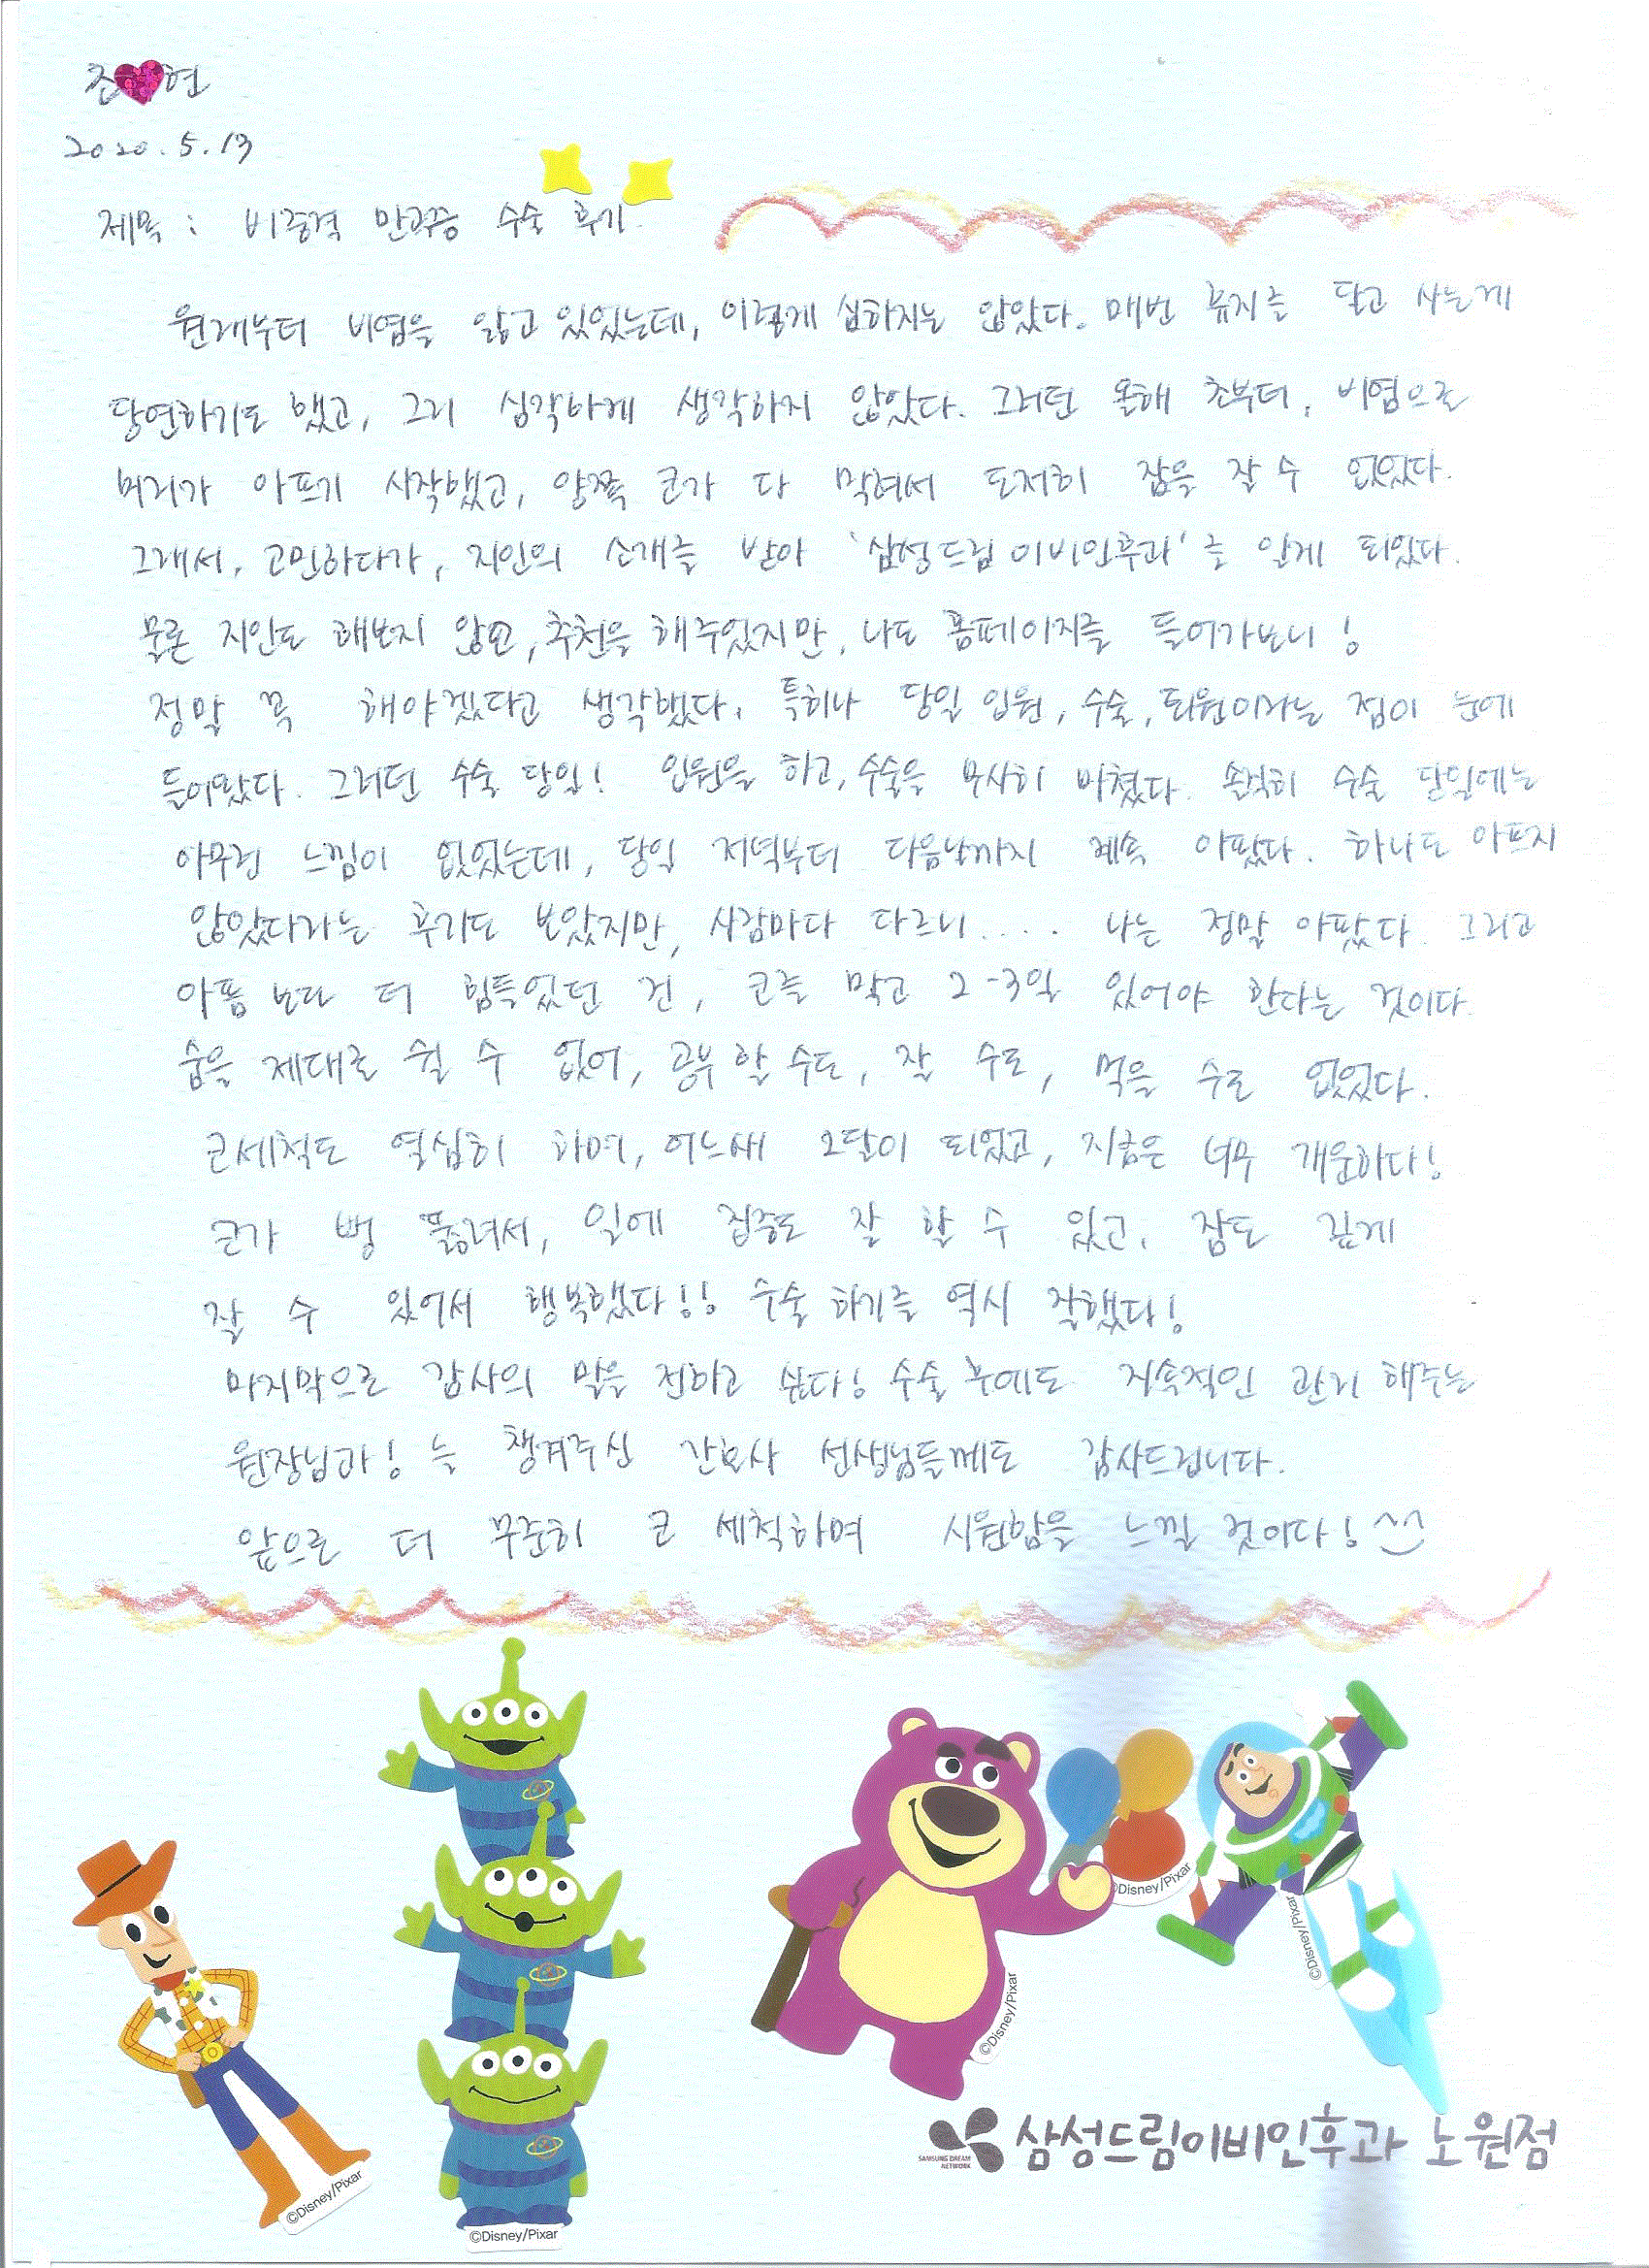 조 현
2020. 5. 13
제목 : 비중격 만곡증 수술 후기
원래부터 비염을 앓고 있었는데, 이렇게 심하지는 않았다. 매번 휴지를 달고 사는게
당연하기도 했고, 그리 심각하게 생각하지 않았다. 그러던 올해 초부터, 비염으로
머리가 아프기 시작했고, 양쪽 코가 다 막혀서 도저히 잠을 잘 수 없었다.
그래서, 고민하다가, 지인의 소개를 받아 '삼성드림이비인후과'를 알게 되었다.
물론 지인도 해보지 않고, 추천을 해주었지만, 나도 홈페이지를 들어가보니!
정말 꼭 해야겠다고 생각했다. 특히나 당일 입원, 수술, 퇴원이라는 점이 눈에
들어왔다. 그러던 수술 당일! 입원을 하고, 수술을 무사히 마쳤다. 솔직히 수술 당일에는
아무런 느낌이 없었는데, 당일 저녁부터 다음날까지 계속 아팠다. 하나도 아프지
않았다라는 후기도 보았지만, 사람마다 다르니.... 나는 정말 아팠다. 그리고
아픔 보다 더 힘들었던 건, 코를 막고 2-3일 있어야 한다는 것이다.
숨을 제대로 쉴 수 없어, 공부 할 수도, 잘 수도, 먹을 수도 없었다.
코세척도 열심히 하며, 어느새 2달이 되었고, 지금은 너무 개운하다!
코가 뻥 뚫려서, 일에 집중도 잘 할 수 있고, 잠도 깊게
잘 수 있어서 행복했다!! 수술 하기를 역시 잘했다!
마지막으로 감사의 말을 전하고 싶다! 수술 후에도 지속적인 관리 해주는
원장님과! 늘 챙겨주신 간호사 선생님들께도 감사드립니다.
앞으로 더 꾸준히 코 세척하며 시원함을 느낄 것이다! ^^
©Disney/Pixar
©Disney/Pixar
©Disney/Pixar
©Disney/Pixar
©Disney/Pixar
SAMSUNG DREAM NETWORK
삼성드림이비인후과 노원점